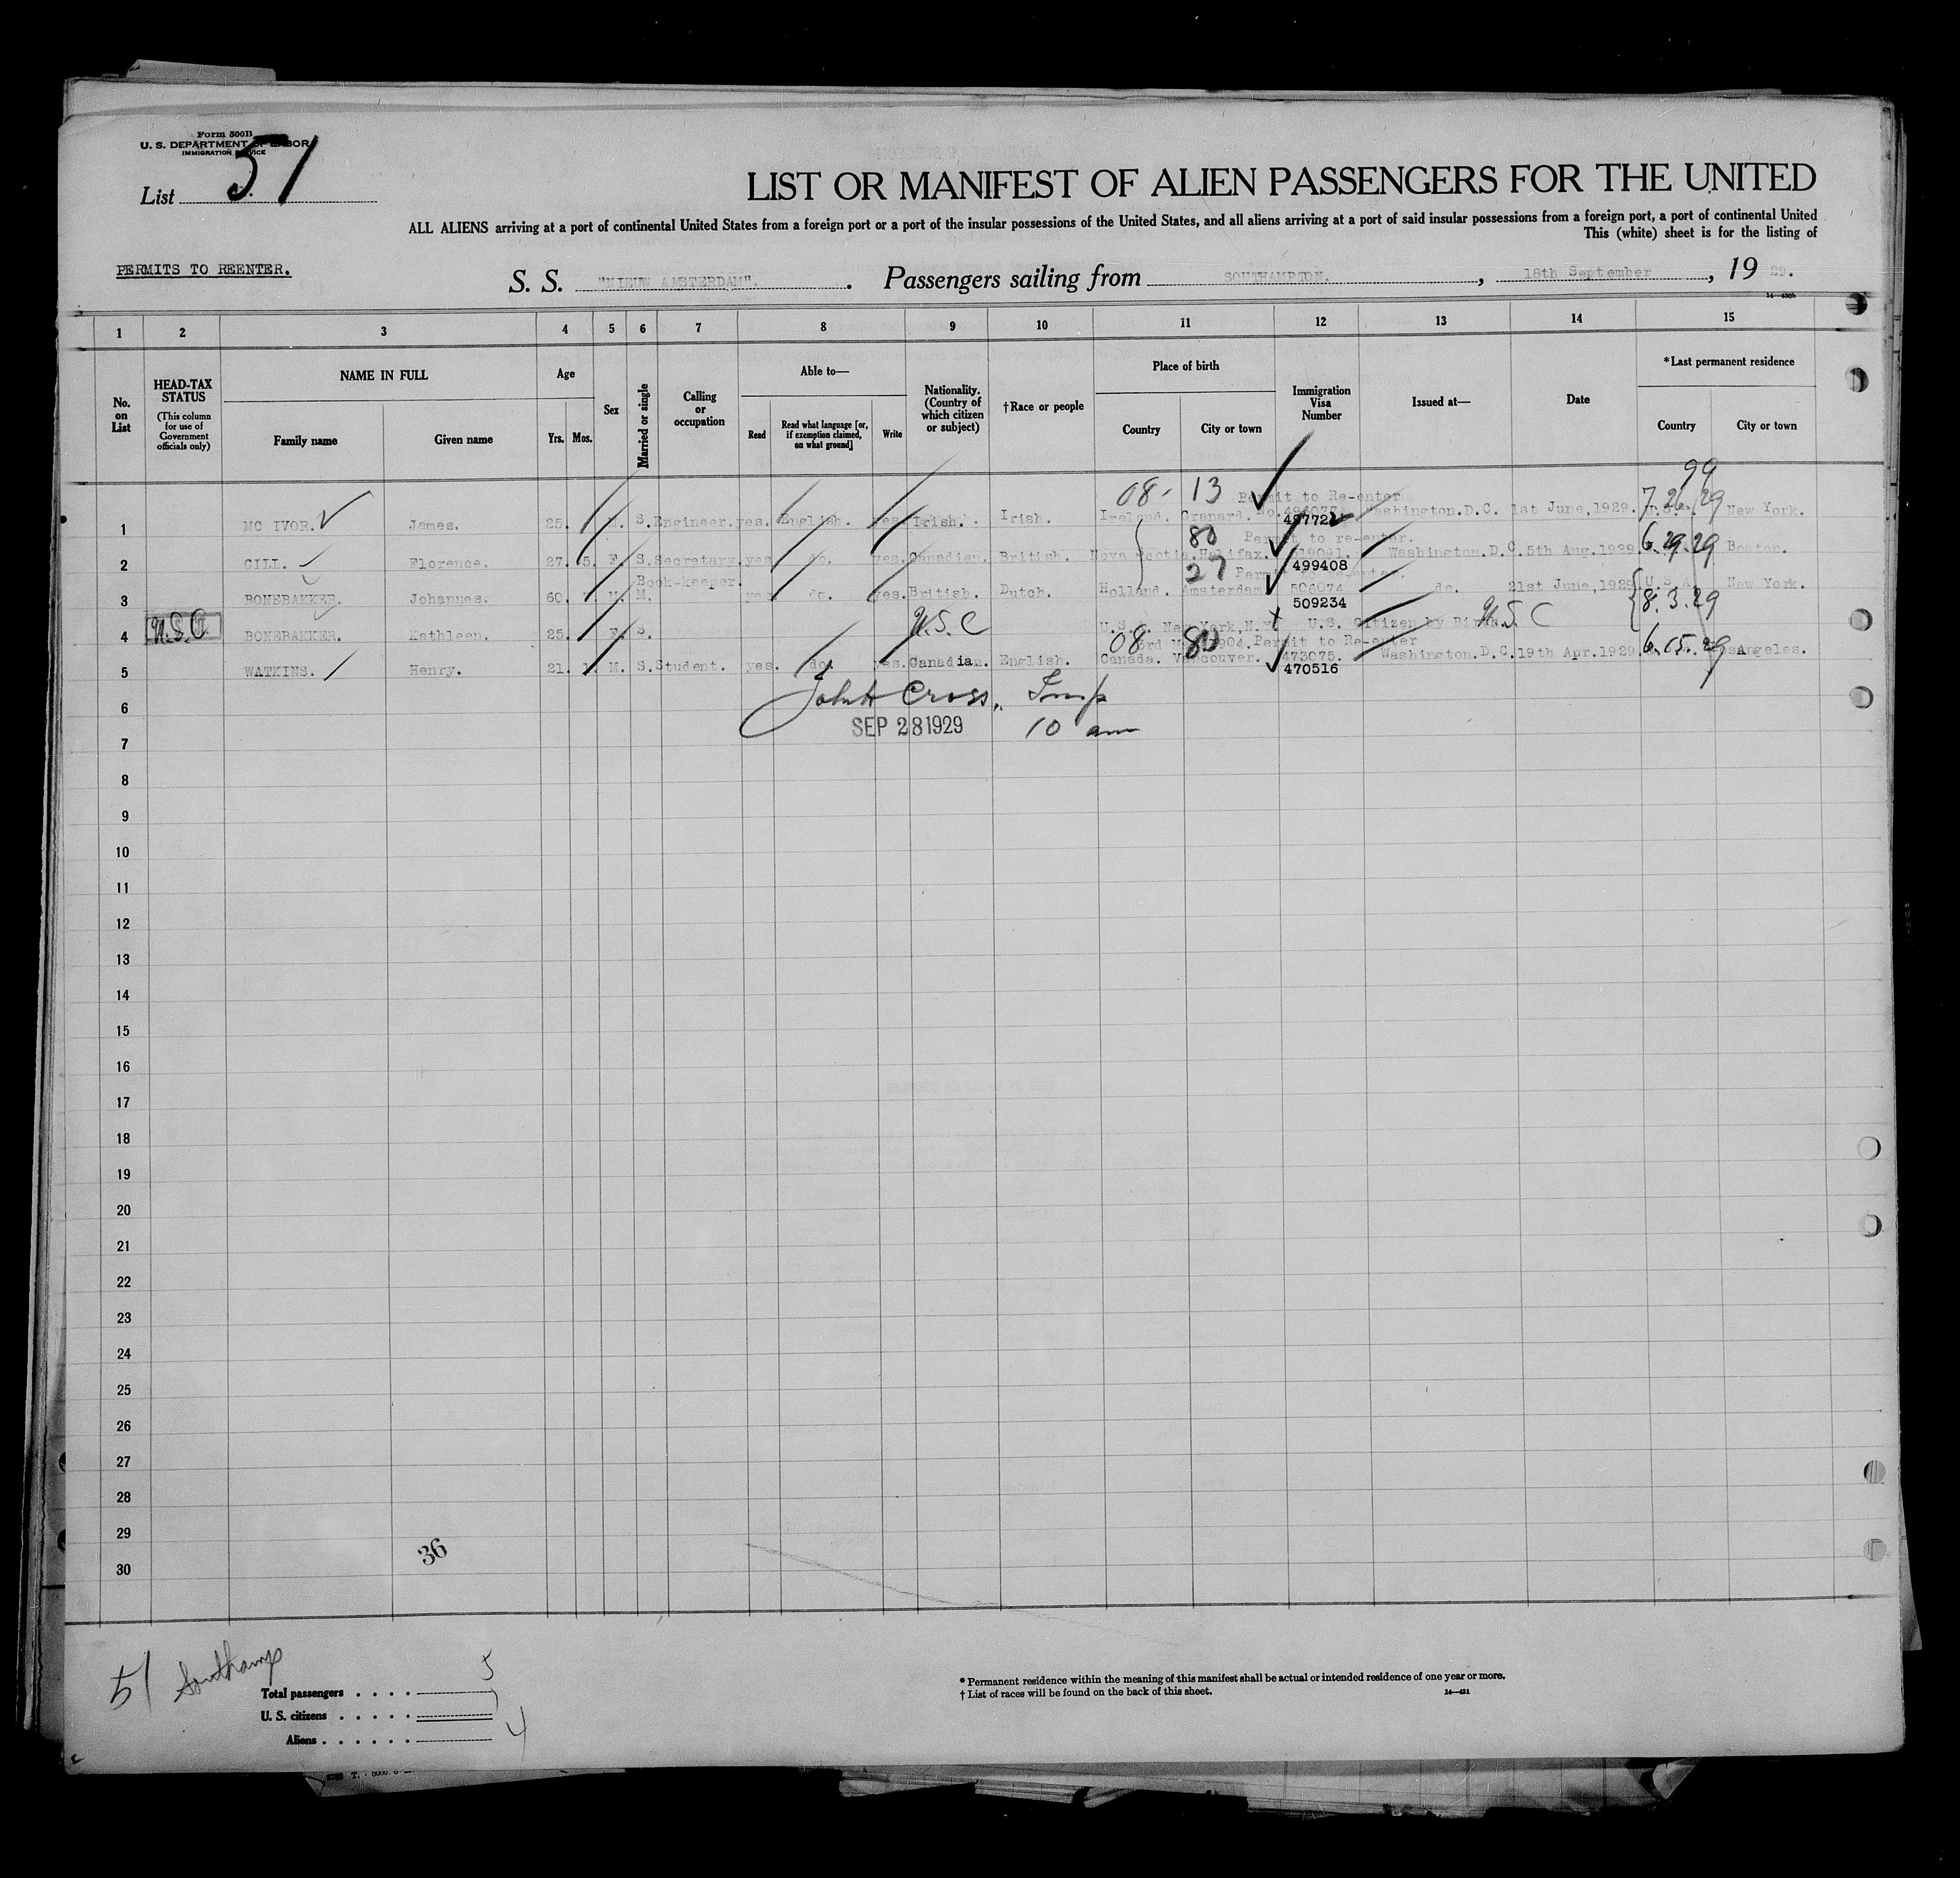 Form 500B
U. S. DEPARTMENT OF LABOR
IMMIGRATION SERVICE
List 51
LIST OR MANIFEST OF ALIEN PASSENGERS FOR THE UNITED
ALL ALIENS arriving at a port of continental United States from a foreign port or a port of the insular possessions of the United States, and all aliens arriving at a port of said insular possessions from a foreign port, a port of continental United
This (white) sheet is for the listing of
PERMITS TO REENTER.
S. S. "NIEUW AMSTERDAM". Passengers sailing from SOUTHAMPTON. , 18th September , 19 29.
1 2 3 4 5 6 7 8 9 10 11 12 13 14 15
No. on List
HEAD-TAX STATUS (This column for use of Government officials only)
NAME IN FULL
Family name Given name
Age
Yrs. Mos.
Sex
Married or single
Calling or occupation
Able to—
Read
Read what language [or, if exemption claimed, on what ground]
Write
Nationality. (Country of which citizen or subject)
†Race or people
Place of birth
Country City or town
Immigration Visa Number
Issued at—
Date
*Last permanent residence
Country City or town
99
08- 13 Permit to Re-enter 7.26.29
1 MC IVOR. James. 25. S. Engineer. yes. English. yes. Irish. Irish. Ireland. Granard. Washington.D.C. 1st June,1929. New York.
80 Permit to re-enter.
2 GILL. Florence. 27. 5. F. S. Secretary. yes do. yes. Canadian. British. Nova Scotia. Halifax. Washington.D.C. 5th Aug.1929. 6.29.29 Boston.
499408
27 Permit to re-enter.
Book-keeper.
3 BONEBAKKER. Johannes. 60. M. M. yes do. yes. British. Dutch. Holland. Amsterdam 506074 do. 21st June,1929 U.S.A. New York.
509234 8.3.29
4 U.S.C. BONEBAKKER. Kathleen. 25. F. S. U.S.C U.S. New York,N.Y. U.S. Citizen by Birth. U.S.C
08 80 Permit to Re-enter
5 WATKINS. Henry. 21. 1. M. S. Student. yes. do. yes. Canadian. English. Canada. Vancouver. 473075. Washington.D.C. 19th Apr.1929. Angeles.
470516
6 John Cross, Insp
7 SEP 28 1929 10 am
8
9
10
11
12
13
14
15
16
17
18
19
20
21
22
23
24
25
26
27
28
29
30
36
51 Southamp
Total passengers . . . . 5
U. S. citizens . . . . . 1
Aliens . . . . . . 4
* Permanent residence within the meaning of this manifest shall be actual or intended residence of one year or more.
† List of races will be found on the back of this sheet.
14—431